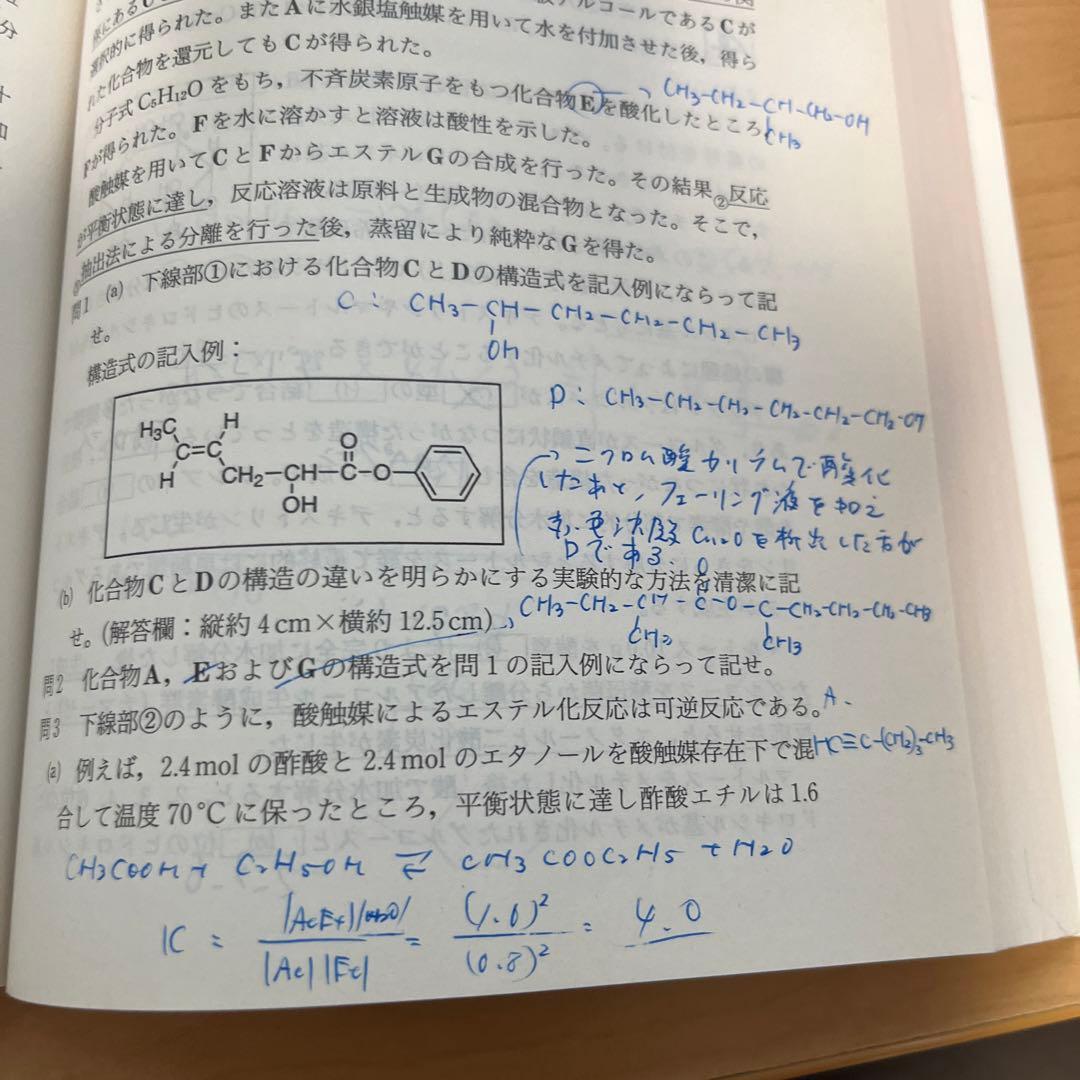 酸アルコールであるCが
選択的に得られた。またAに水銀塩触媒を用いて水を付加させた後，得ら
れた化合物を還元してもCが得られた。
分子式C₅H₁₂Oをもち，不斉炭素原子をもつ化合物Eを酸化したところ
CH3-CH2-CH-CH2-OH
CH3
Fが得られた。Fを水に溶かすと溶液は酸性を示した。
酸触媒を用いてCとFからエステルGの合成を行った。その結果②反応
が平衡状態に達し，反応溶液は原料と生成物の混合物となった。そこで，
抽出法による分離を行った後，蒸留により純粋なGを得た。
問1 (a) 下線部①における化合物CとDの構造式を記入例にならって記
せ。
C: CH3-CH-CH2-CH2-CH2-CH3
OH
構造式の記入例：
D: CH3-CH2-CH2-CH2-CH2-CH2-OH
H₃C H
C=C O
H CH₂-CH-C-O
OH
二クロム酸カリウムで酸化
したあと，フェーリング液を加え
赤色沈殿Cu2Oを析出した方が
Dである。
(b) 化合物CとDの構造の違いを明らかにする実験的な方法を清潔に記
せ。(解答欄：縦約4cm×横約12.5cm)
O
CH3-CH2-CH-C-O-C-CH2-CH2-CH2-CH3
CH3 CH3
問2 化合物A，EおよびGの構造式を問1の記入例にならって記せ。
問3 下線部②のように，酸触媒によるエステル化反応は可逆反応である。
A.
HC≡C-(CH2)3-CH3
(a) 例えば，2.4molの酢酸と2.4molのエタノールを酸触媒存在下で混
合して温度70℃に保ったところ，平衡状態に達し酢酸エチルは1.6
CH3COOH + C2H5OH ⇄ CH3COOC2H5 + H2O
K = |AcEt||H2O| / |Ac||Et| = (1.6)² / (0.8)² = 4.0